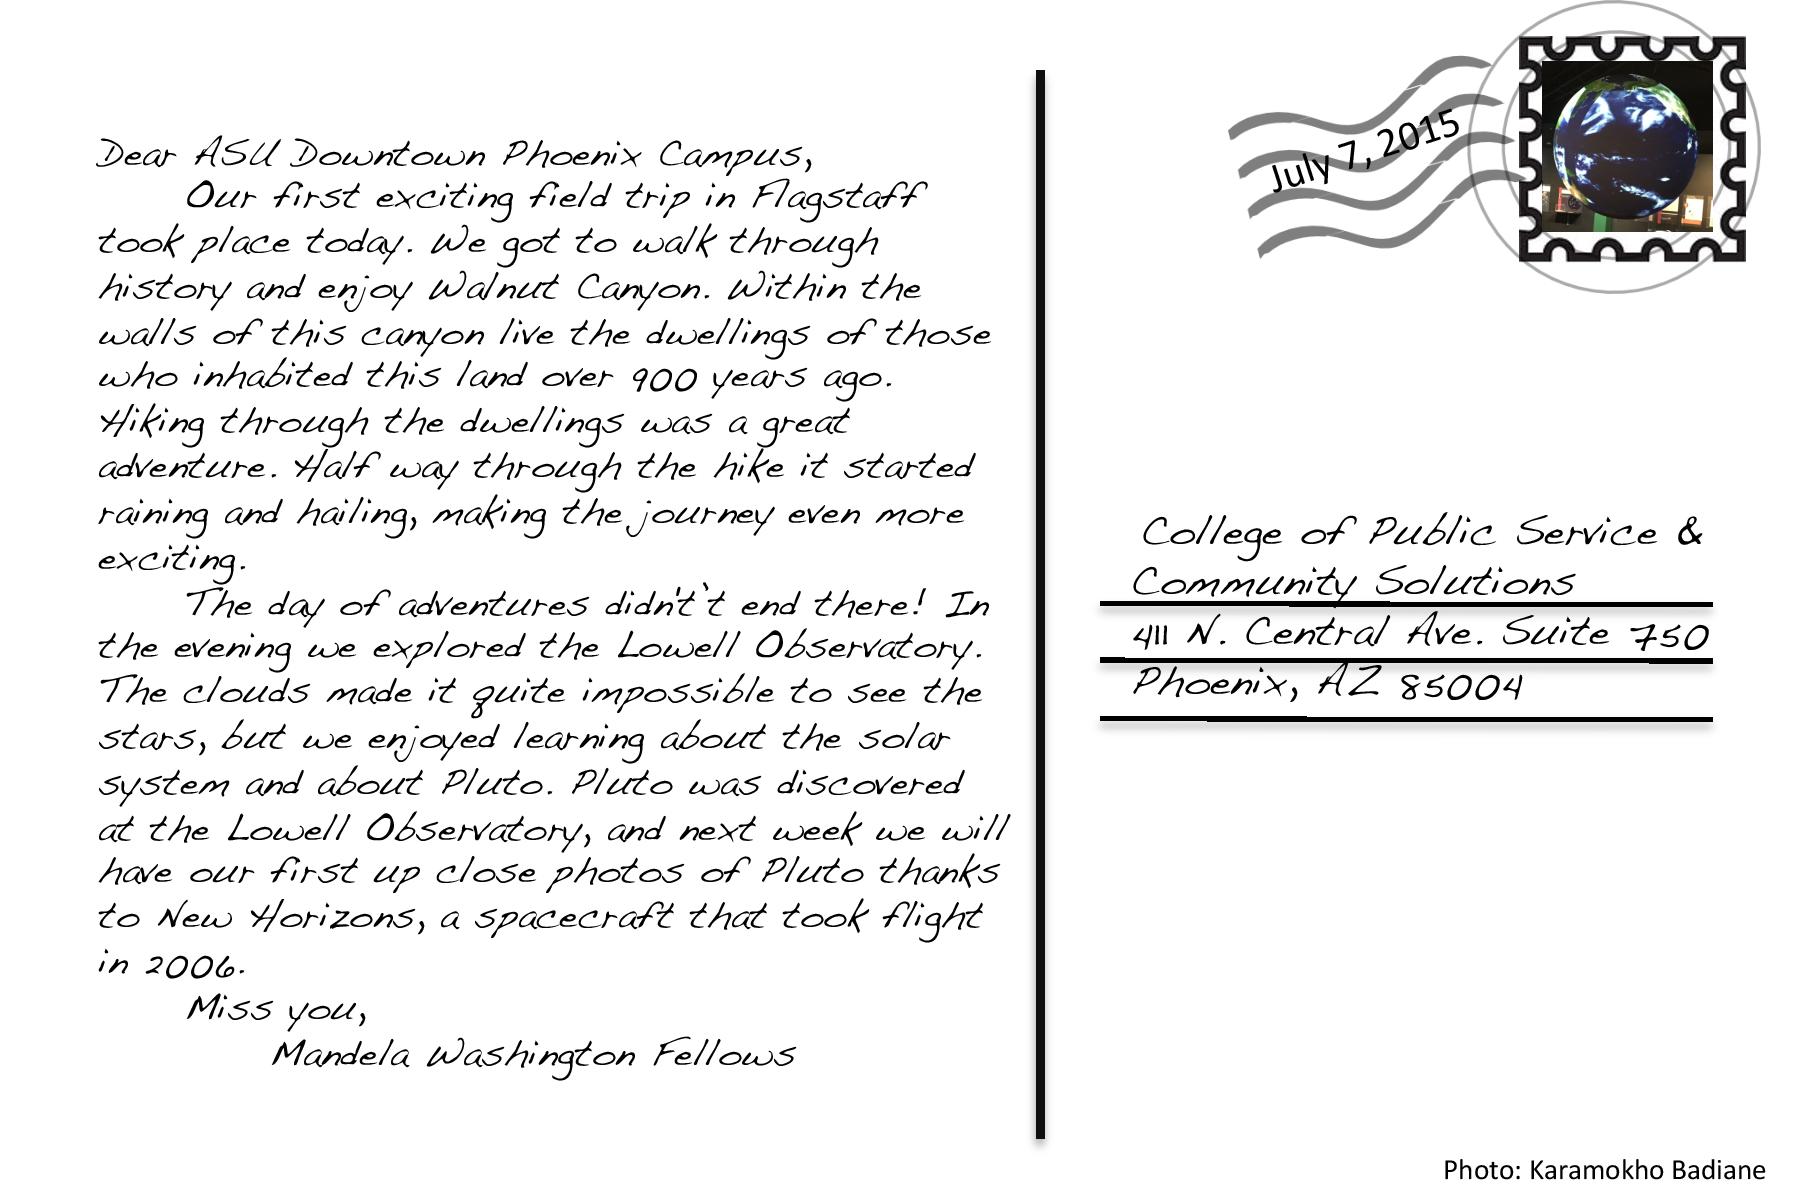 Dear ASU Downtown Phoenix Campus,
Our first exciting field trip in Flagstaff
took place today. We got to walk through
history and enjoy Walnut Canyon. Within the
walls of this canyon live the dwellings of those
who inhabited this land over 900 years ago.
Hiking through the dwellings was a great
adventure. Half way through the hike it started
raining and hailing, making the journey even more
exciting.
The day of adventures didn't't end there! In
the evening we explored the Lowell Observatory.
The clouds made it quite impossible to see the
stars, but we enjoyed learning about the solar
system and about Pluto. Pluto was discovered
at the Lowell Observatory, and next week we will
have our first up close photos of Pluto thanks
to New Horizons, a spacecraft that took flight
in 2006.
Miss you,
Mandela Washington Fellows
July 7, 2015
College of Public Service &
Community Solutions
411 N. Central Ave. Suite 750
Phoenix, AZ 85004
Photo: Karamokho Badiane